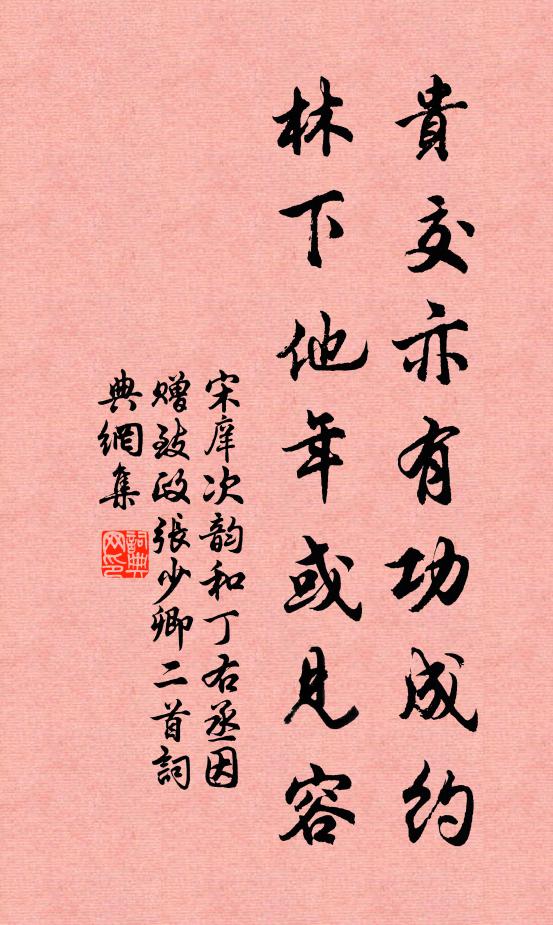 貴交亦有功成約
林下他年或見容
宋庠次韵和丁右丞因
赠致政張少卿二首詞
典網集
詞典网印